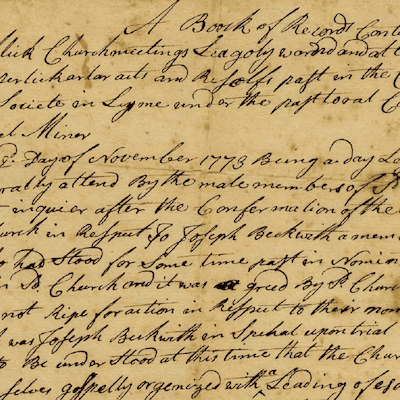 A Boock of Records Conta
lick Churchmeetings Leagoly warnd and at
erlickarlar acts and Resolfs past in the C
Societe in Lyme under the pastoral C
el Miner
Day of November 1773 Being a day Le
rally attend By the male members of Sd
inquier after the Confermation of the
urch in Respect to Joseph Beckwith a mem
o had Stood for Some time past in Nomin
n Sd. Church and it was a greed By Sd. Churc
not Ripe for action in Respect to their nom
was Joseph Beckwith in Spehal upon trial
to Be under Stood at this time that the Chur
selves gospelly orgenized with a Leading of es